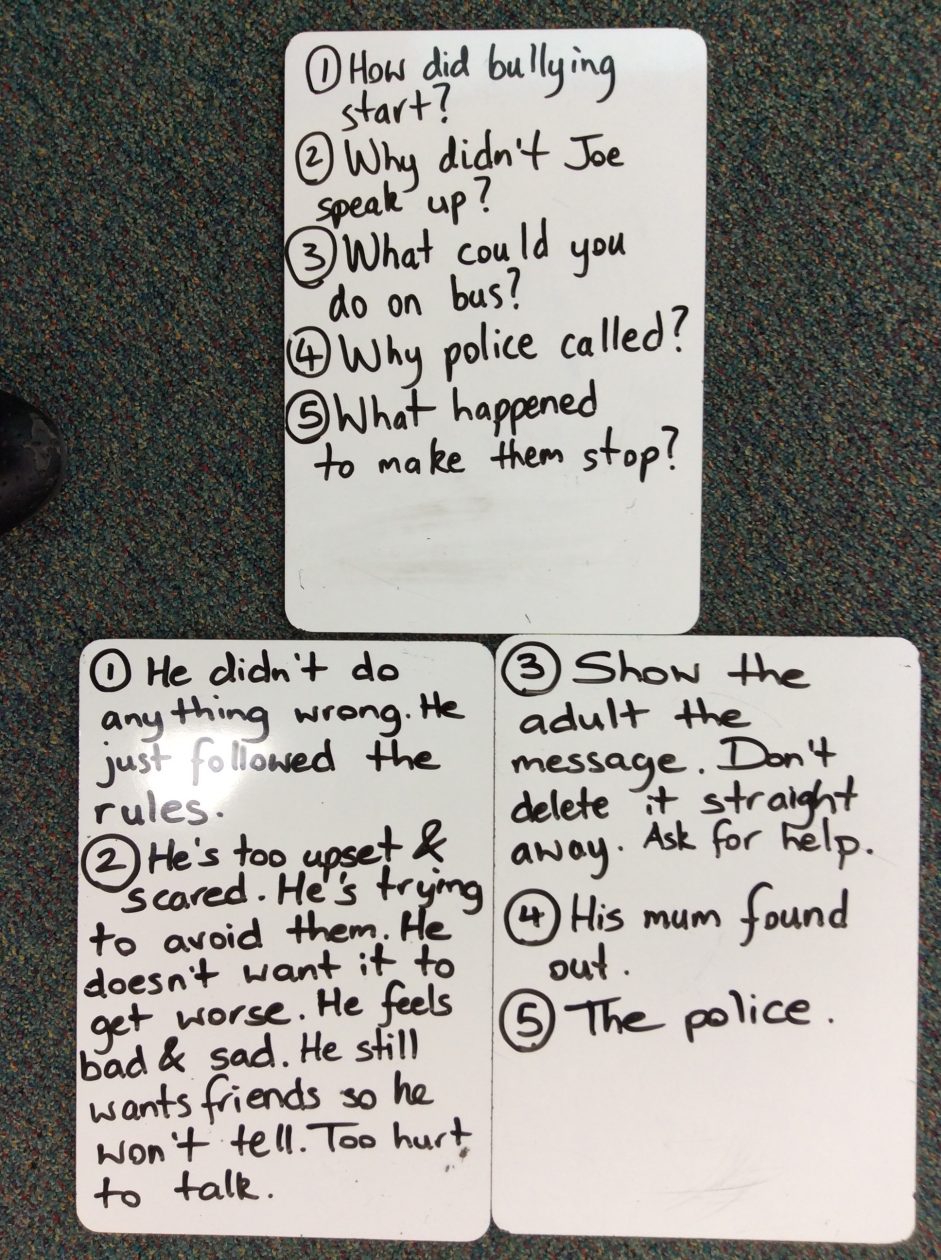 ① How did bullying
start?
② Why didn't Joe
speak up?
③ What could you
do on bus?
④ Why police called?
⑤ What happened
to make them stop?
① He didn't do
anything wrong. He
just followed the
rules.
② He's too upset &
scared. He's trying
to avoid them. He
doesn't want it to
get worse. He feels
bad & sad. He still
wants friends so he
won't tell. Too hurt
to talk.
③ Show the
adult the
message. Don't
delete it straight
away. Ask for help.
④ His mum found
out.
⑤ The police.